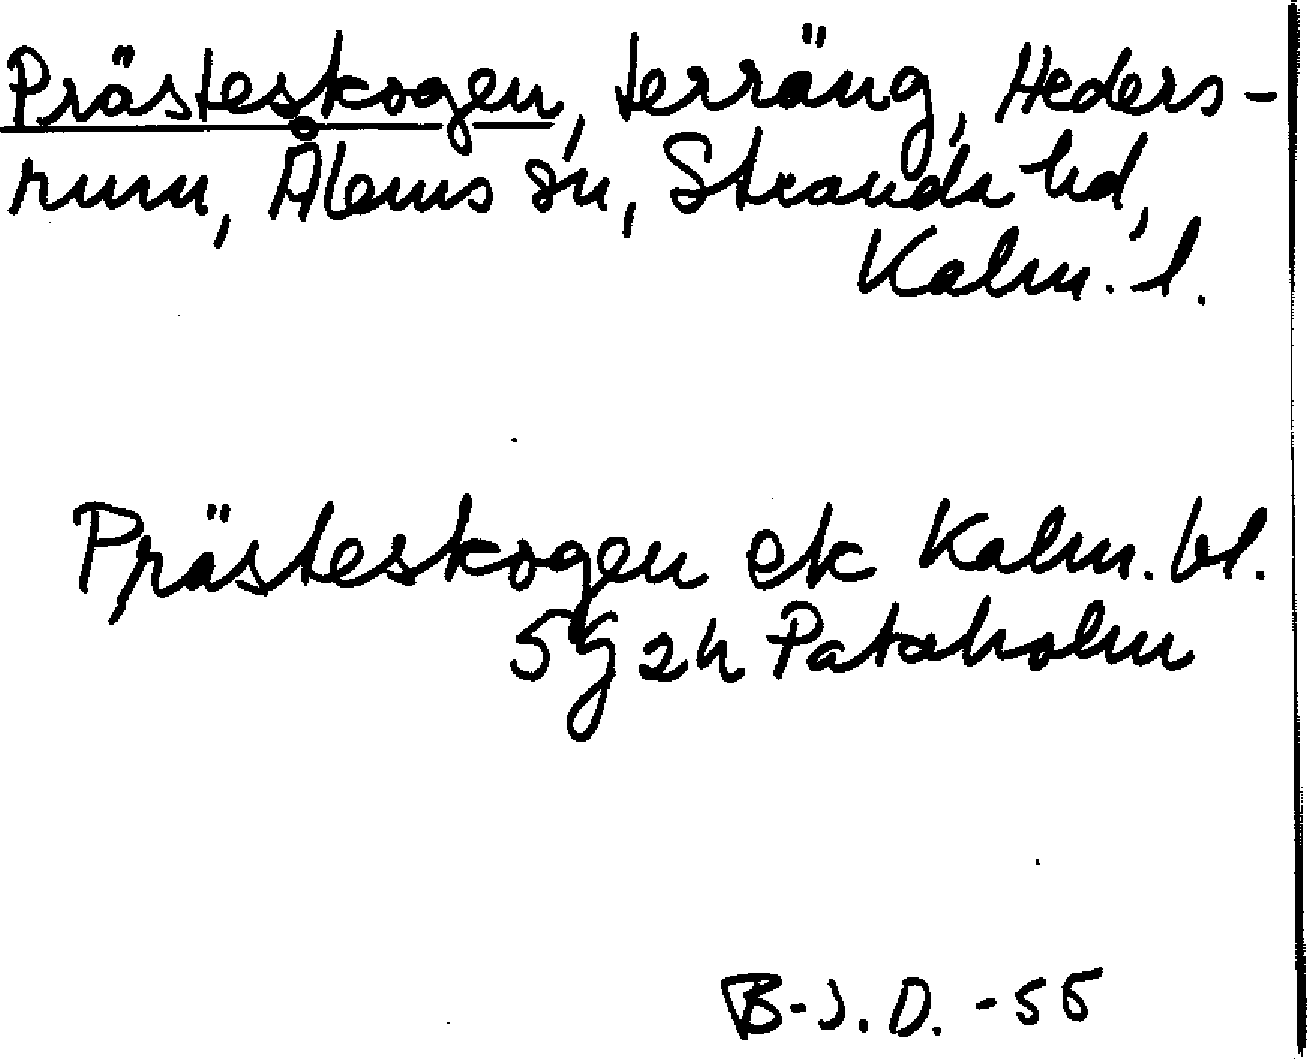 Prästeskogen, terräng, Heders-
rum, Ålems sn, Stranda hd,
Kalm. l.
Prästeskogen ek Kalm. bl.
5g 2h Pataholm
B-J. D. -55